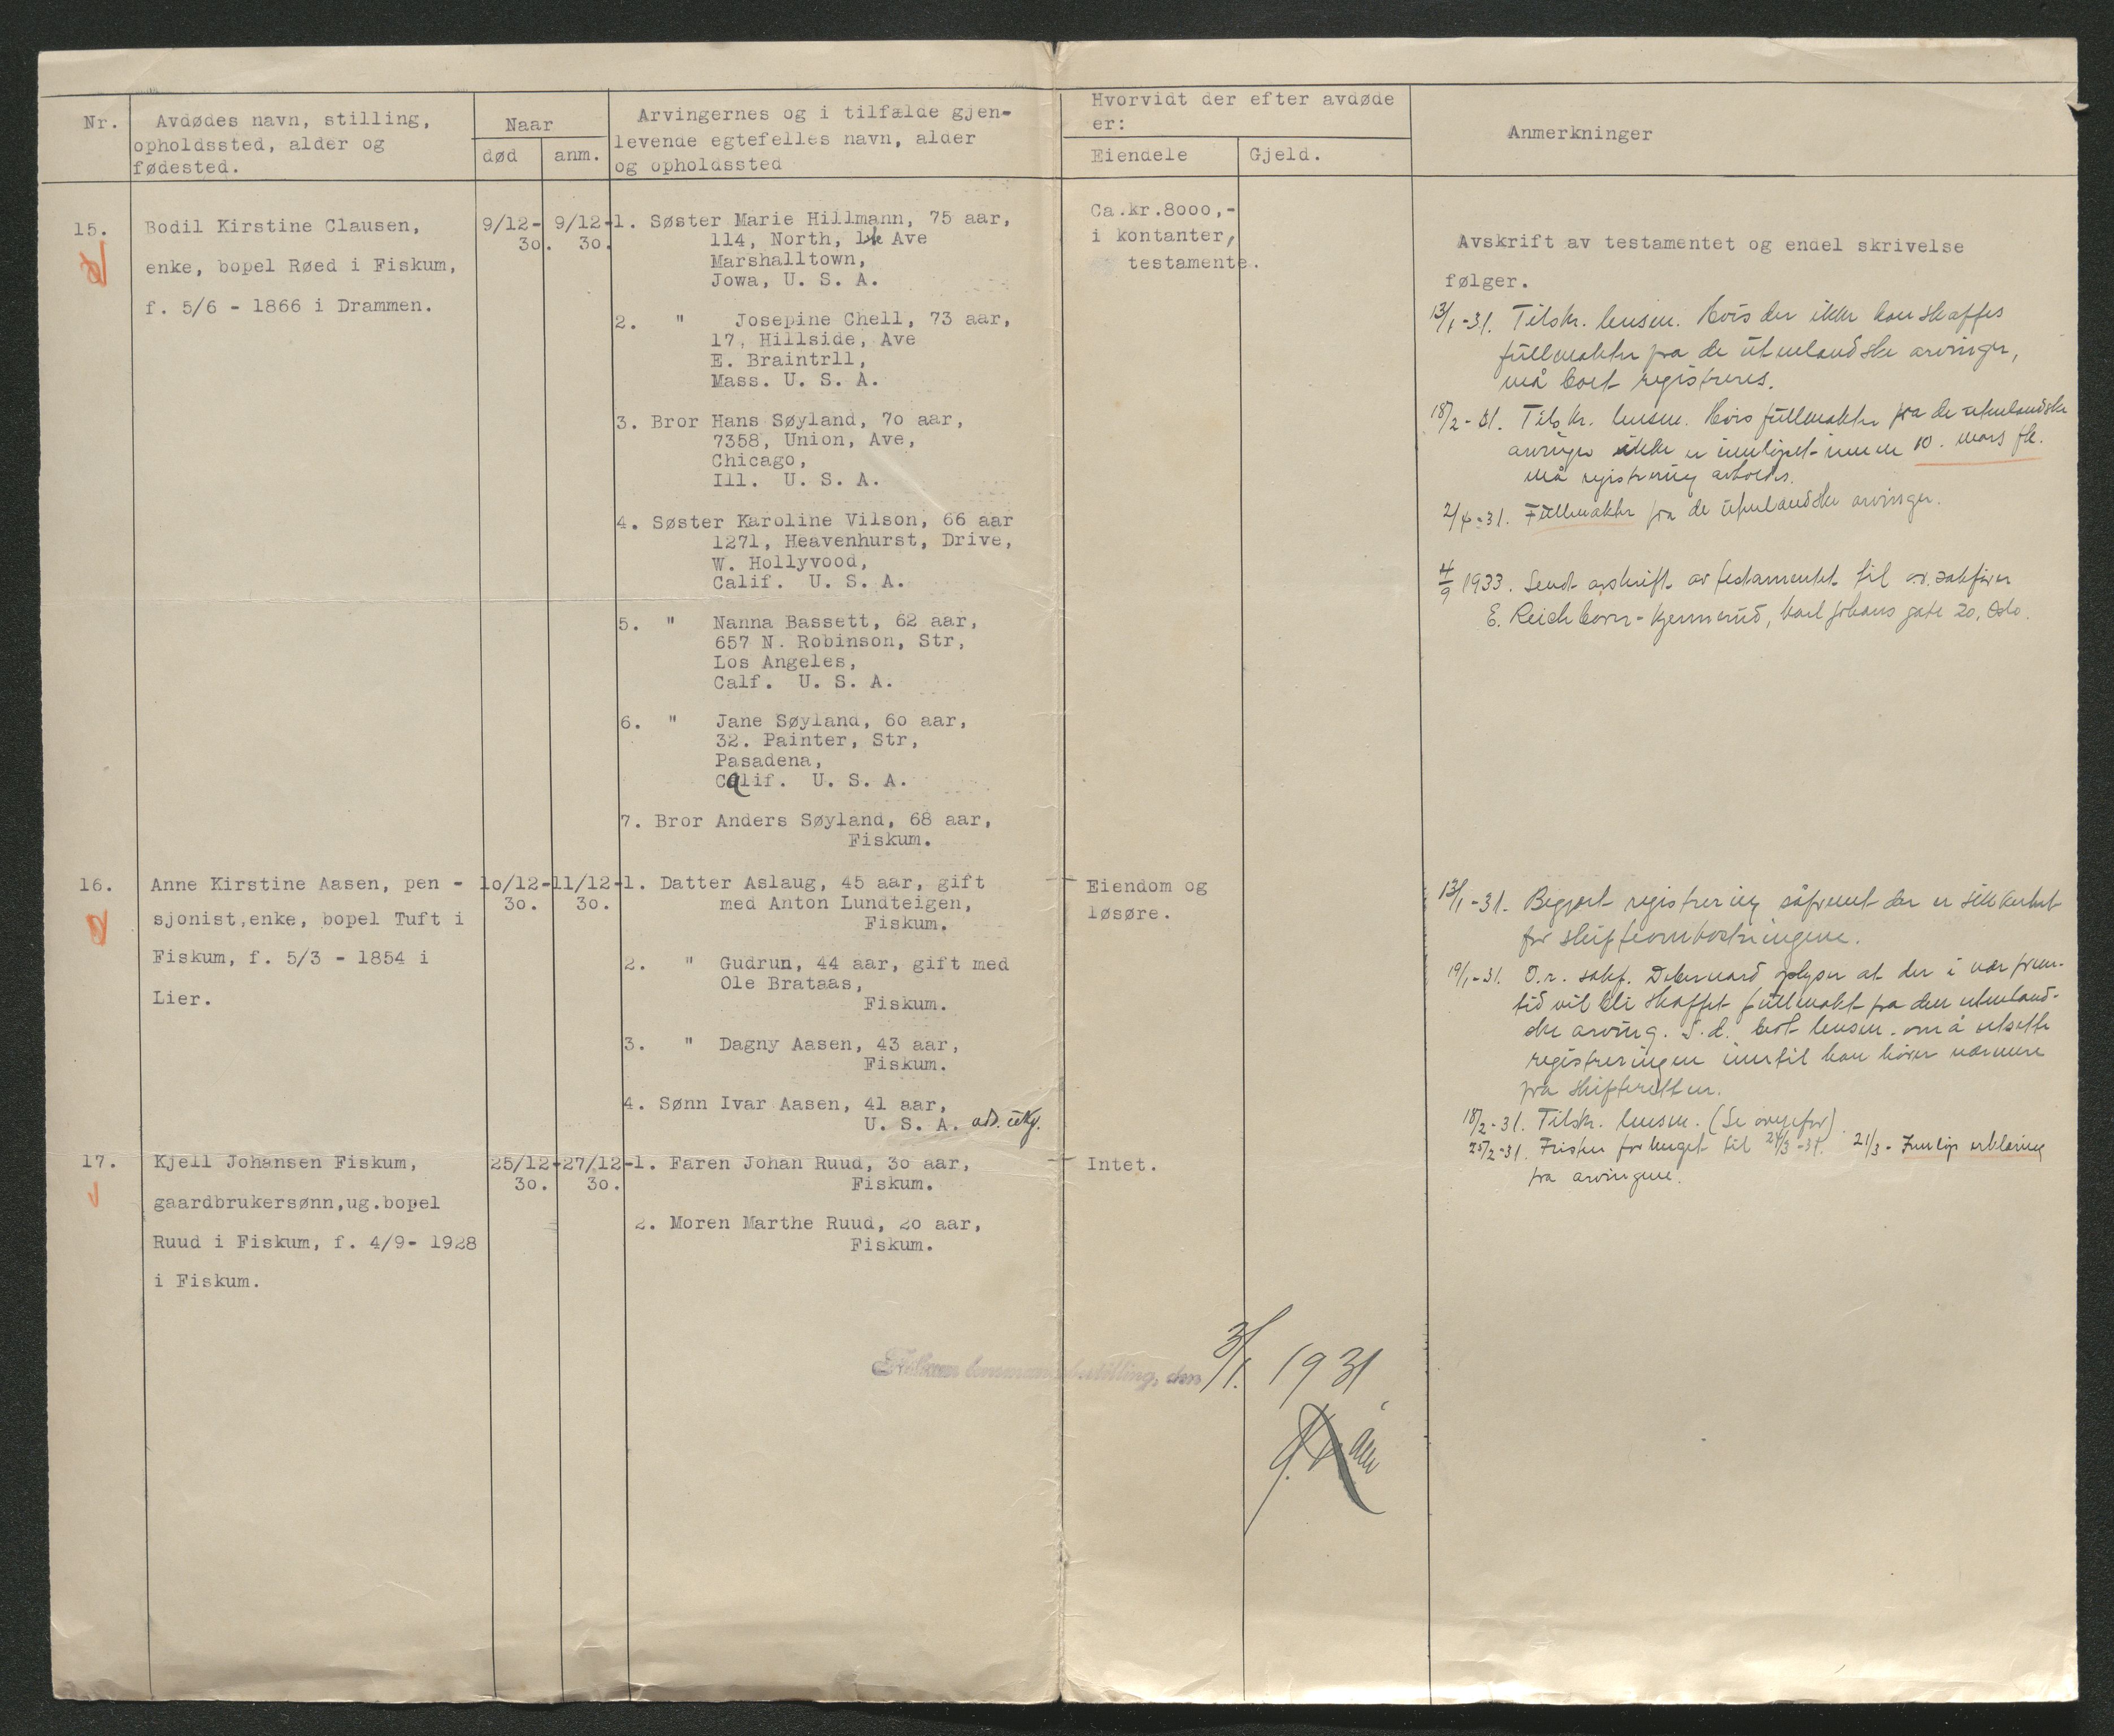 Nr.
Avdødes navn, stilling,
opholdssted, alder og
fødested.
Naar
død
anm.
Arvingernes og i tilfælde gjen-
levende egtefelles navn, alder
og opholdssted
Hvorvidt der efter avdøde
er:
Eiendele
Gjeld.
Anmerkninger
15.
Bodil Kirstine Clausen,
enke, bopel Røed i Fiskum,
f. 5/6 - 1866 i Drammen.
9/12-
30.
9/12-
30.
1. Søster Marie Hillmann, 75 aar,
114, North, Ave
Marshalltown,
Jowa, U. S. A.
2. " Josepine Chell, 73 aar,
17, Hillside, Ave
E. Braintrll,
Mass. U. S. A.
3. Bror Hans Søyland, 70 aar,
7358, Union, Ave,
Chicago,
Ill. U. S. A.
4. Søster Karoline Vilson, 66 aar
1271, Heavenhurst, Drive,
W. Hollyvood,
Calif. U. S. A.
5. " Nanna Bassett, 62 aar,
657 N. Robinson, Str,
Los Angeles,
Calf. U. S. A.
6. " Jane Søyland, 60 aar,
32. Painter, Str,
Pasadena,
Calif. U. S. A.
7. Bror Anders Søyland, 68 aar,
Fiskum.
Ca.kr.8000,-
i kontanter,
testamente.
Avskrift av testamentet og endel skrivelse
følger.
13/1-31. Tilskr. lensm. Hvis der ikke kan skaffes
fullmakter fra de utenlandske arvinger,
må boet registreres.
18/2-31. Tilskr. lensm. Hvis fullmakter fra de utenlandske
arvinger ikke er innløpet innen 10. mars fk.
må registrering avholdes.
2/4-31. Fullmakter fra de utenlandske arvinger.
4/9 1933. Sendt avskrift av testamentet til o.r.sakfører
E. Reichborn-Kjennerud, Karl Johans gate 20, Oslo.
16.
Anne Kirstine Aasen, pen -
sjonist,enke, bopel Tuft i
Fiskum, f. 5/3 - 1854 i
Lier.
10/12-
30.
11/12-
30.
1. Datter Aslaug, 45 aar, gift
med Anton Lundteigen,
Fiskum.
2. " Gudrun, 44 aar, gift med
Ole Brataas,
Fiskum.
3. " Dagny Aasen, 43 aar,
Fiskum.
4. Sønn Ivar Aasen, 41 aar,
U. S. A.
Eiendom og
løsøre.
13/1-31. Begjært registrering såfremt der er sikkerhet
for skifteomkostningene.
19/1-31. O.r. sakf. oplyser at der i nær frem-
tid vil bli skaffet fullmakt fra den utenland-
ske arving. S.d. lensm. om å utsette
registreringen inntil han hører nærmere
fra skifteretten.
18/2-31. Tilskr. lensm. (Se ovenfor)
25/2-31. Fristen forlenget til 24/3-31. 21/3 - Innløp erklæring
fra arvingene.
17.
Kjell Johansen Fiskum,
gaardbrukersønn,ug.bopel
Ruud i Fiskum, f. 4/9- 1928
i Fiskum.
25/12-
30.
27/12-
30.
1. Faren Johan Ruud, 30 aar,
Fiskum.
2. Moren Marthe Ruud, 20 aar,
Fiskum.
Intet.
Fiskum lensmannsbestilling, den 3/1. 1931